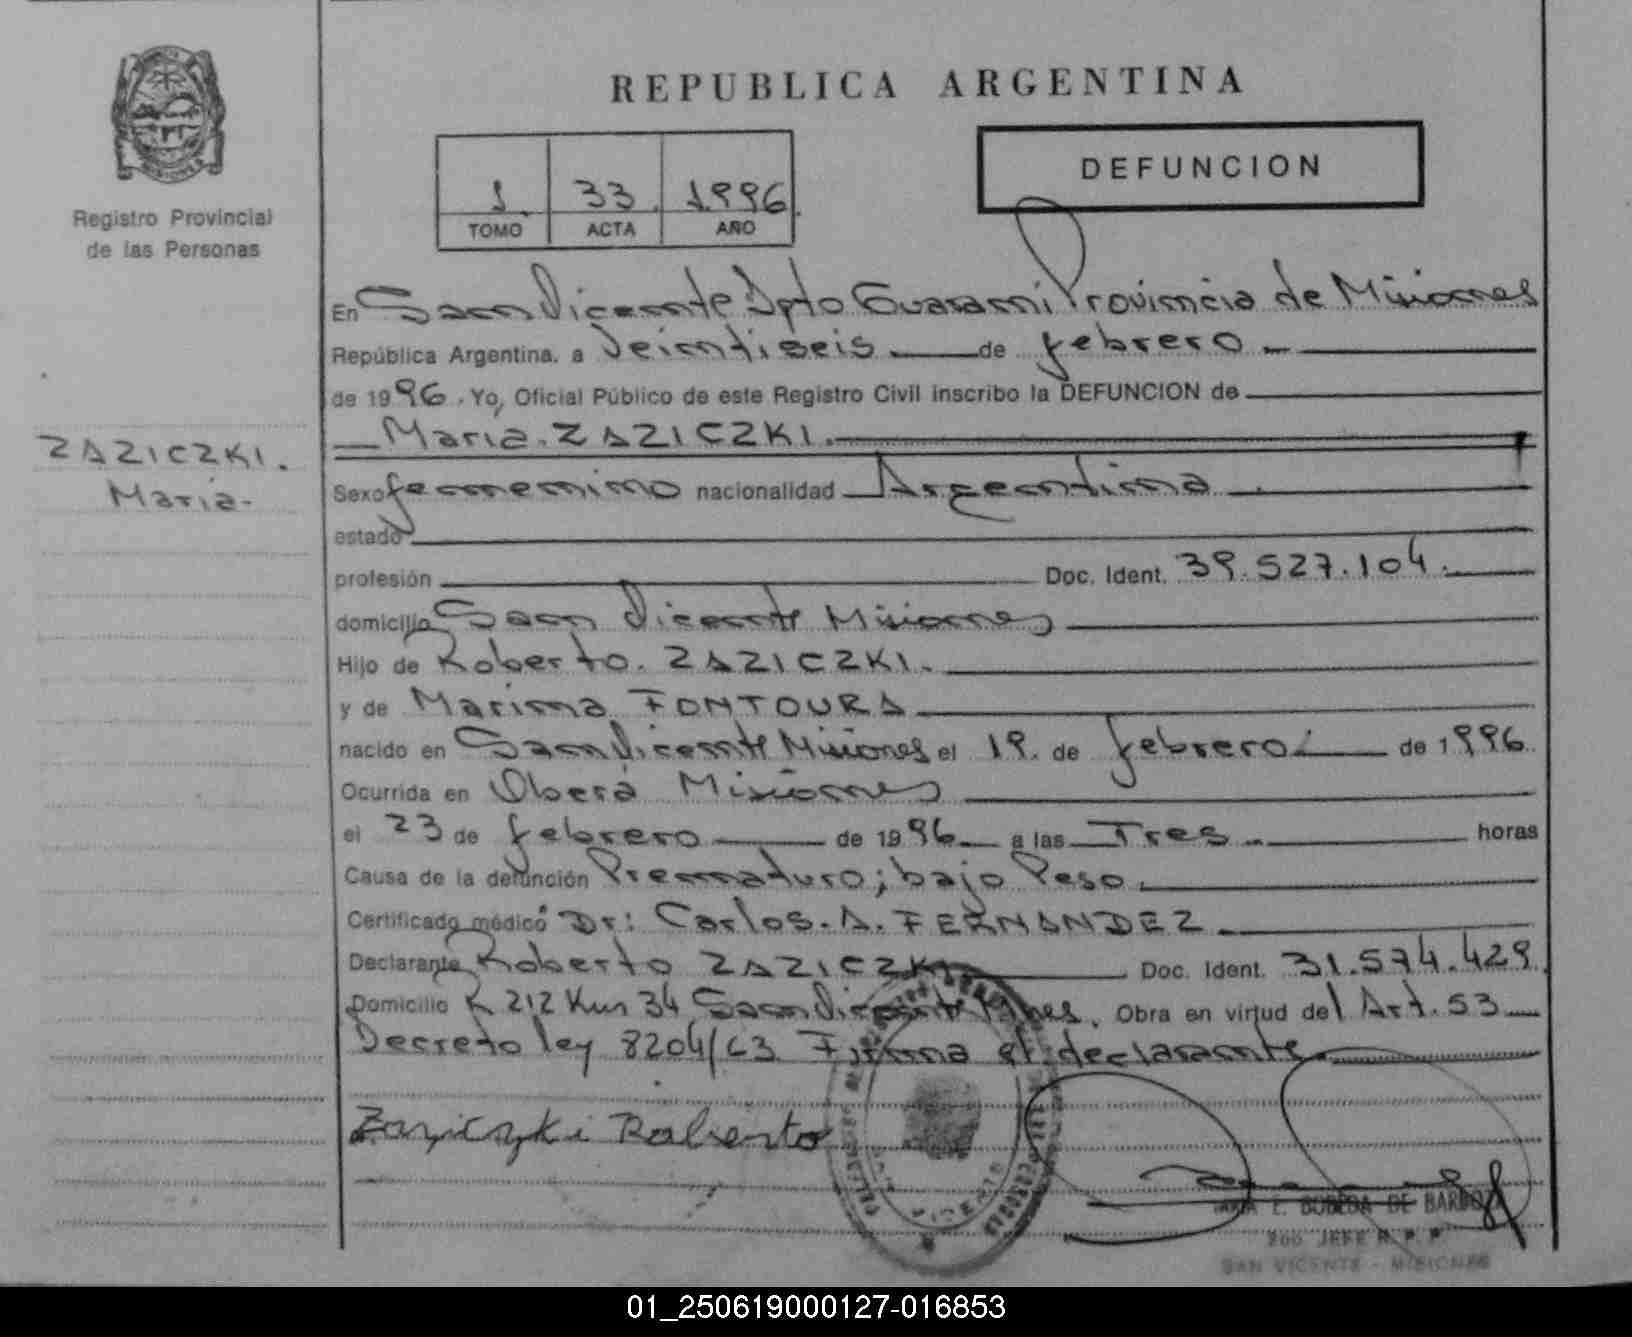 REPUBLICA ARGENTINA
DEFUNCION
1 33 1996
TOMO ACTA AÑO
Registro Provincial
de las Personas
En San Vicente Dpto Guarani Provincia de Misiones
República Argentina. a Veintiseis de febrero
de 1996. Yo, Oficial Público de este Registro Civil inscribo la DEFUNCION de
Maria. ZAZICZKI.
ZAZICZKI.
Maria-
Sexo femenino nacionalidad Argentina
estado
profesión Doc. Ident. 39.527.104.
domicilio San Vicente Misiones
Hijo de Roberto. ZAZICZKI.
y de Marina FONTOURA
nacido en San Vicente Misiones el 19. de febrero de 1996.
Ocurrida en Oberá Misiones
el 23 de febrero de 1996 a las Tres horas
Causa de la defunción Prematuro; bajo Peso
Certificado médico Dr: Carlos. A. FERNANDEZ
Declarante Roberto ZAZICZKI Doc. Ident. 31.574.429.
Domicilio R 212 Km 34 San Vicente Mnes. Obra en virtud del Art. 53
Decreto ley 8204/63 Firma el declarante
Zaziczki Roberto
E. BOBEDA DE BARBOZA
JEFE R. P. P.
SAN VICENTE - MISIONES
01_250619000127-016853